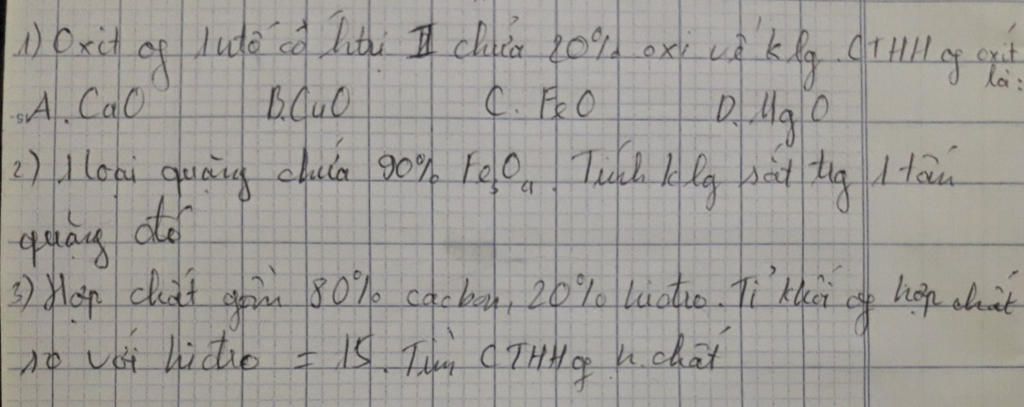 1) Oxit of 1 ntố có htri II chứa 20% oxi về k lg. CTHH of oxit
là:
A. CaO B. CuO C. FeO D. MgO
2) 1 loại quặng chứa 90% Fe3O4. Tính k lg sắt tng 1 tấn
quặng đó
3) Hợp chất gồm 80% cacbon, 20% hiđro. Tỉ khối of hợp chất
so với hiđro = 15. Tìm CTHH of h.chất